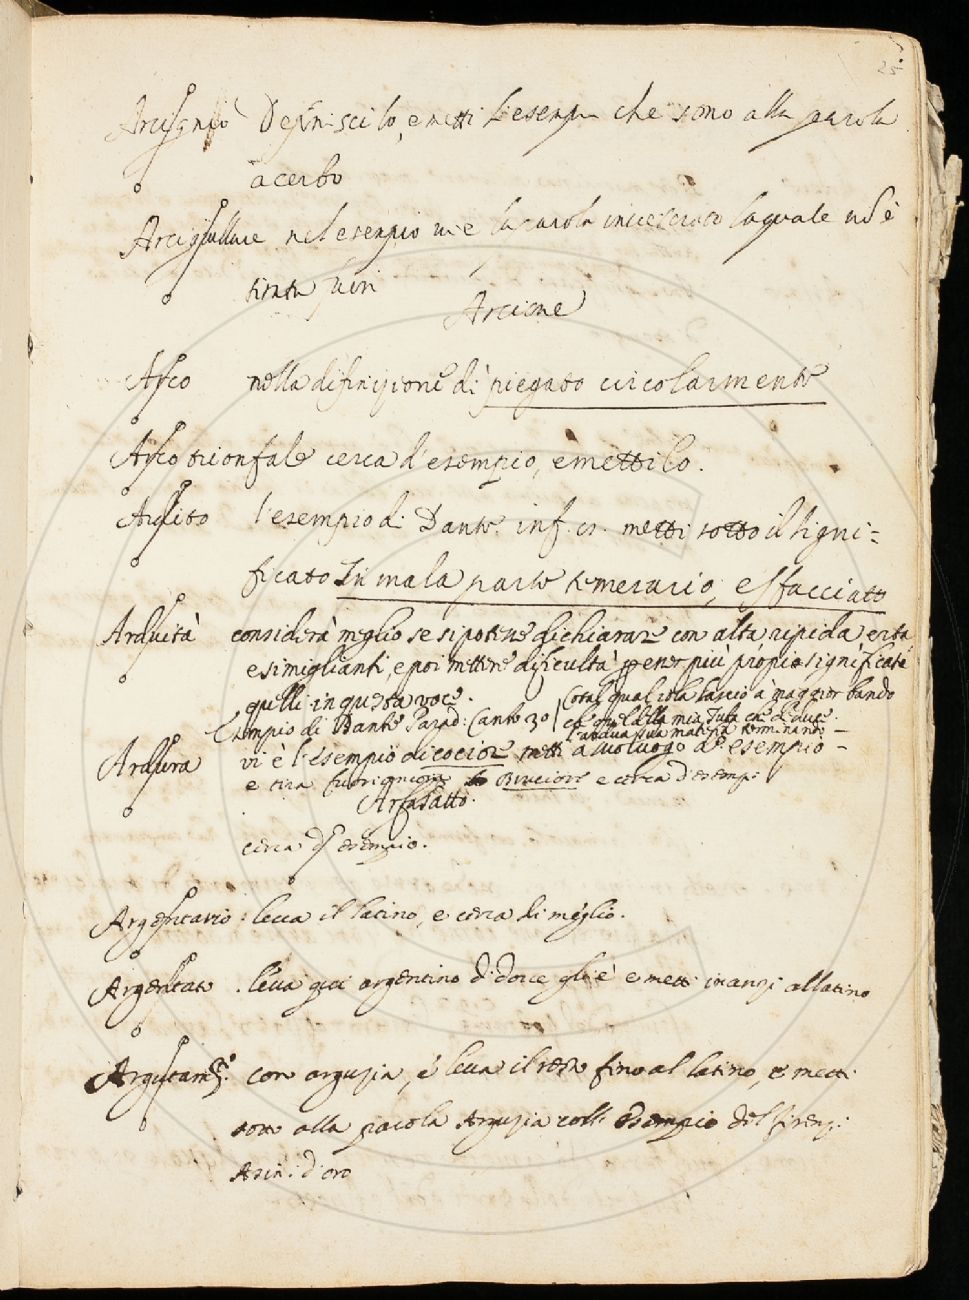 25
Arcigno Definiscilo, e metti l'esempi che sono alla parola
acerbo
Arcigiullare nel esempio vi è la parola invescirato la quale nõ è
tirata fuori
Arcione
Arco nella difinizione di piegato circolarmente
Arco trionfale cerca d'esempio, e mettilo.
Ardito l'esempio di Dante. inf. metti sotto il signi-
ficato In mala parte temerario, e sfacciato
Arduità considera meglio se si potesse dichiarare con alta ripida erta
e simiglianti, e poi mettere dificultà p esser più propio significato
quelli in questa voce.
Esempio di Dante Parad: Canto 30 / Cotal qual io la lascio à maggior bando
che quel della mia Tuba che deduce
l'ardua sua matera terminando
Arsura vi è l'esempio di cocior metti a suo luogo d'esempio -
e tira fuori ancora bruciore e cerca d'esemp:
Arfasatto.
cerca d'esempio.
Argentario: leva il latino, e cerca di meglio.
Argentato. leva qui argentino di dove gli è e metti inanzi al latino
Argutam.e con arguzia, e leva il resto fino al latino, e metti
sotto alla parola Arguzia coll: esempio del firenz:
Asin: d'oro